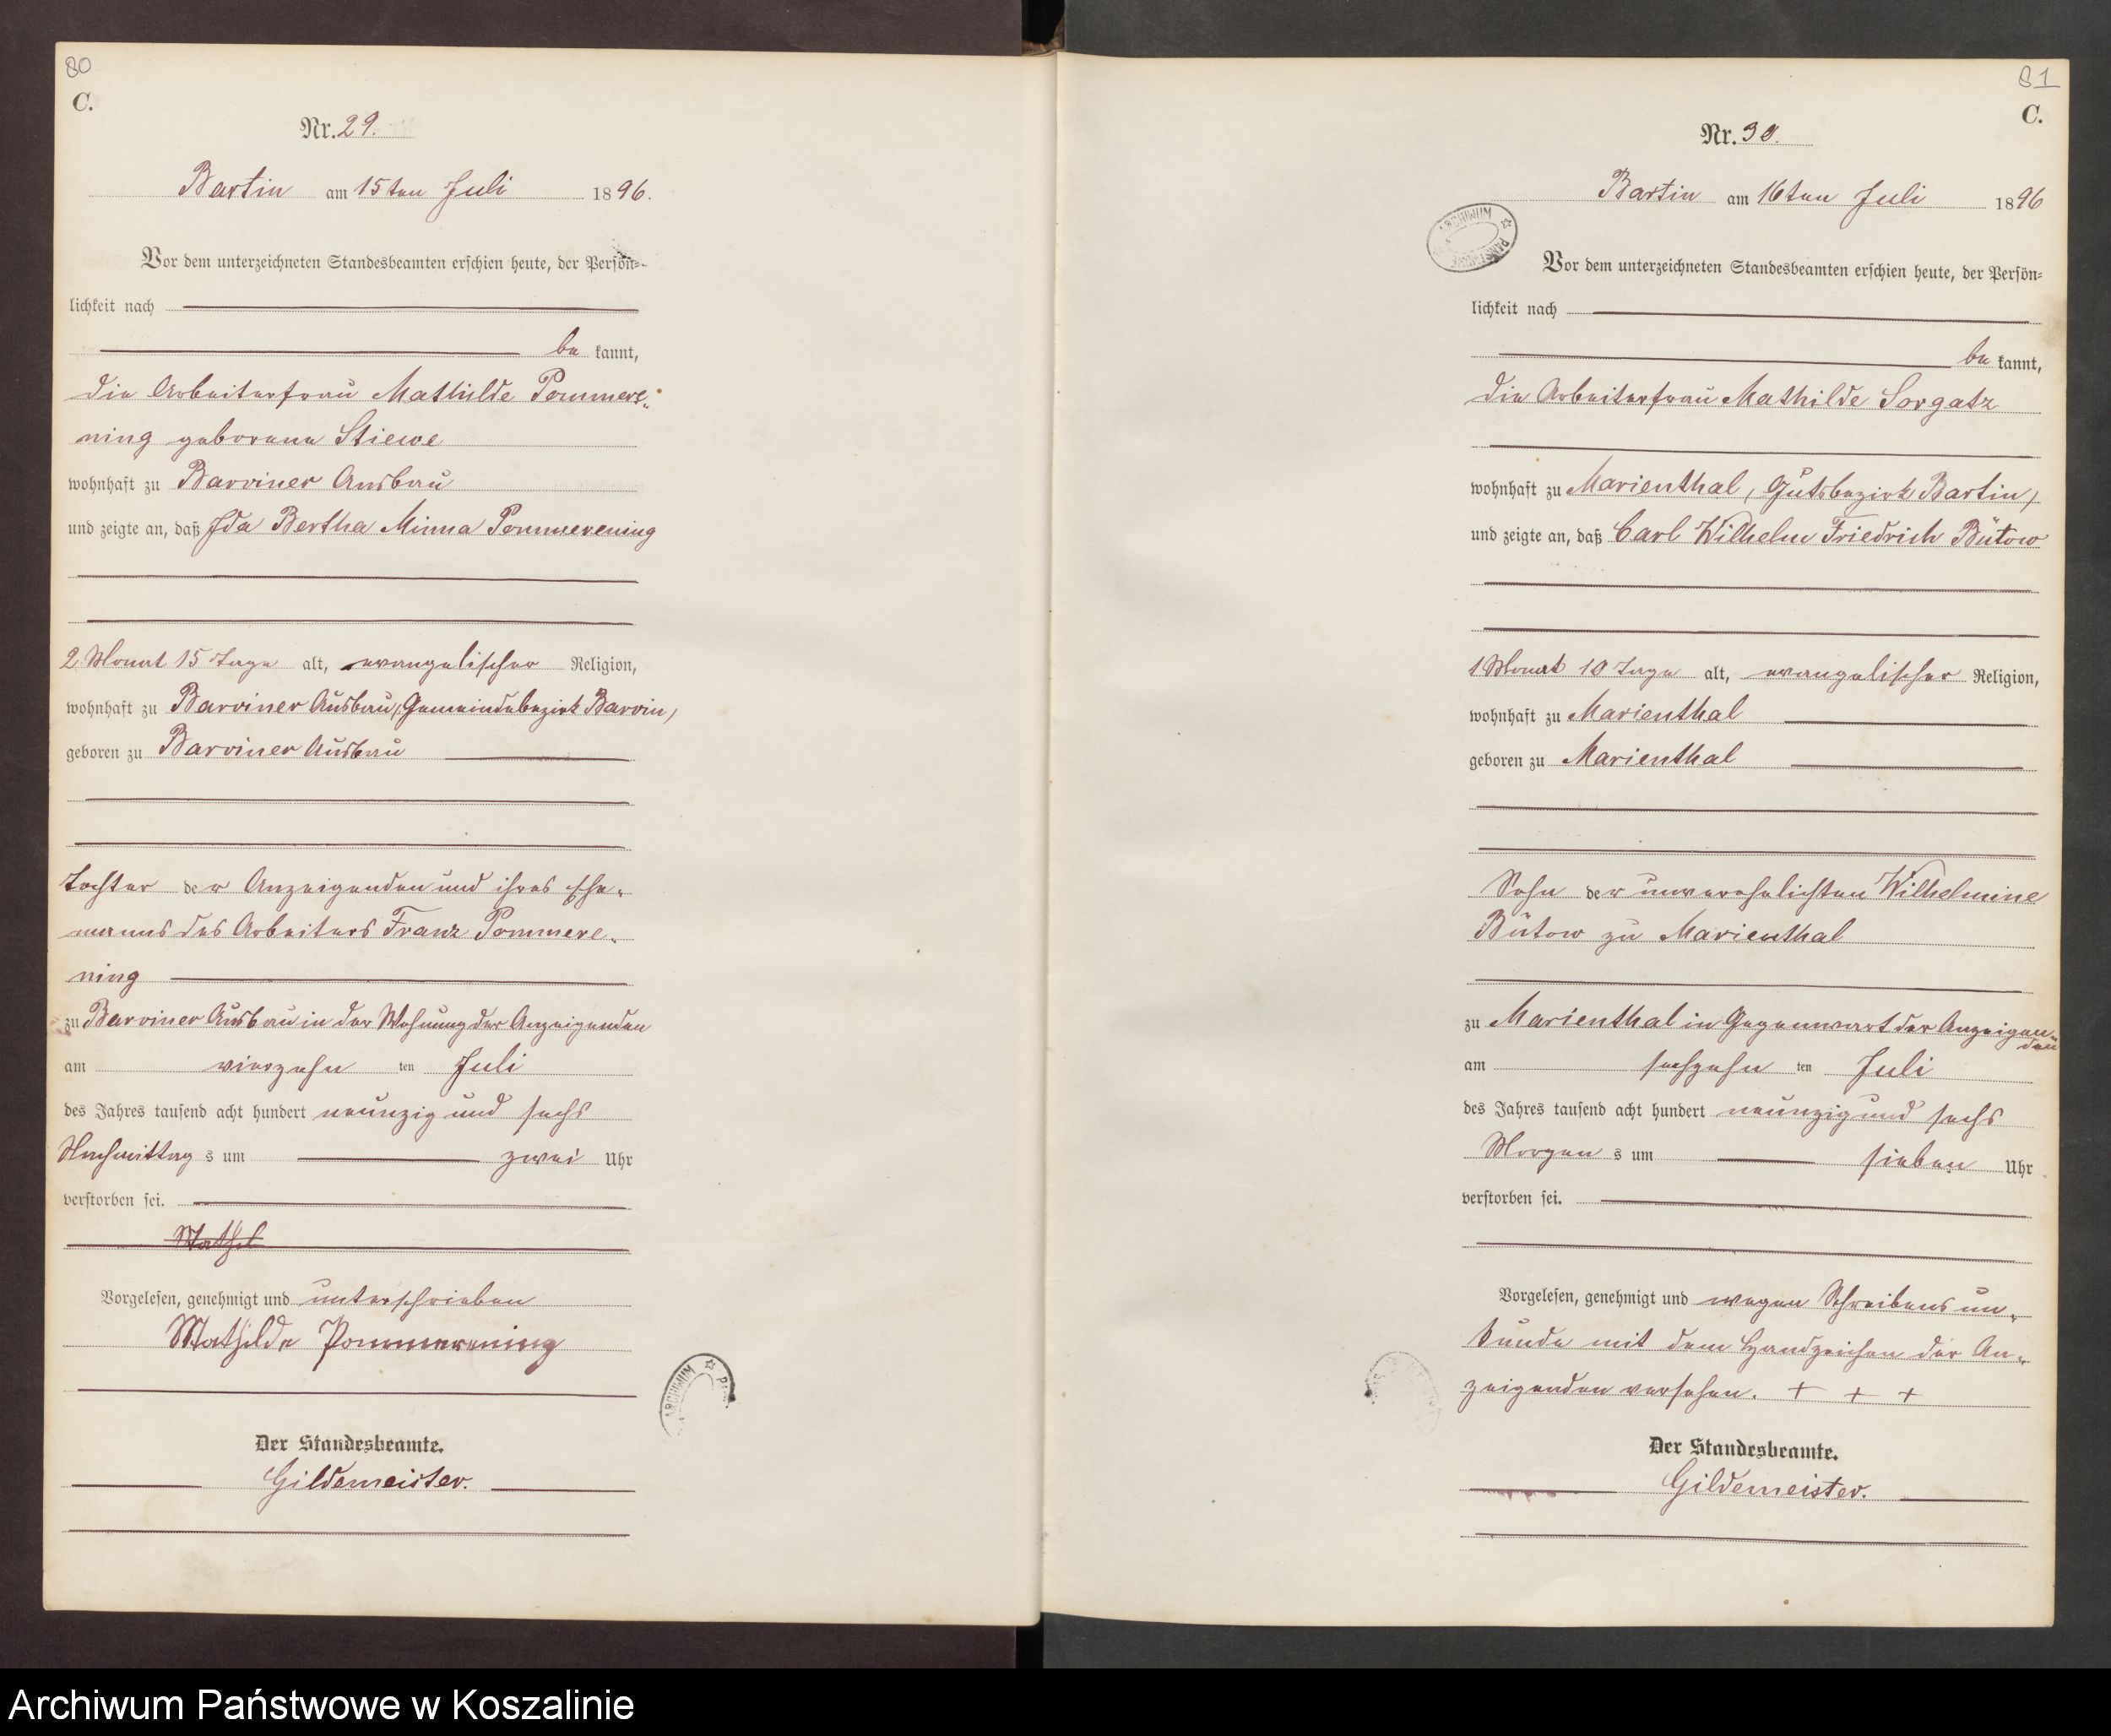 80
C.
Nr. 29.
Bartin am 15ten Juli 1896.
Vor dem unterzeichneten Standesbeamten erschien heute, der Persön-
lichkeit nach
be kannt,
die Arbeiterfrau Mathilde Pommere-
ning geborene Stiewe
wohnhaft zu Barviner Ausbau
und zeigte an, daß Ida Bertha Minna Pommerening
2 Monat 15 Tage alt, evangelischer Religion,
wohnhaft zu Barviner Ausbau, Gemeindebezirk Barvin,
geboren zu Barviner Ausbau
Tochter der Anzeigenden und ihres Ehe-
manns des Arbeiters Franz Pommere-
ning
zu Barviner Ausbau in der Wohnung der Anzeigenden
am vierzehn ten Juli
des Jahres tausend acht hundert neunzig und sechs
Nachmittag s um zwei Uhr
verstorben sei.
Mathil
Vorgelesen, genehmigt und unterschrieben
Mathilde Pommerening
Der Standesbeamte.
Gildemeister.
ARCHIWUM
81
C.
Nr. 30.
Bartin am 16ten Juli 1896
ARCHIWUM
Vor dem unterzeichneten Standesbeamten erschien heute, der Persön-
lichkeit nach
be kannt,
die Arbeiterfrau Mathilde Sorgatz
wohnhaft zu Marienthal, Gutsbezirk Bartin,
und zeigte an, daß Carl Wilhelm Friedrich Bütow
1 Monat 10 Tage alt, evangelischer Religion,
wohnhaft zu Marienthal
geboren zu Marienthal
Sohn der unverehelichten Wilhelmine
Bütow zu Marienthal
zu Marienthal in Gegenwart der Anzeigen-
den
am sechzehn ten Juli
des Jahres tausend acht hundert neunzig und sechs
Morgen s um sieben Uhr
verstorben sei.
Vorgelesen, genehmigt und wegen Schreibensun-
kunde mit dem Handzeichen der An-
zeigenden versehen. + + +
Der Standesbeamte.
Gildemeister.
Archiwum Państwowe w Koszalinie